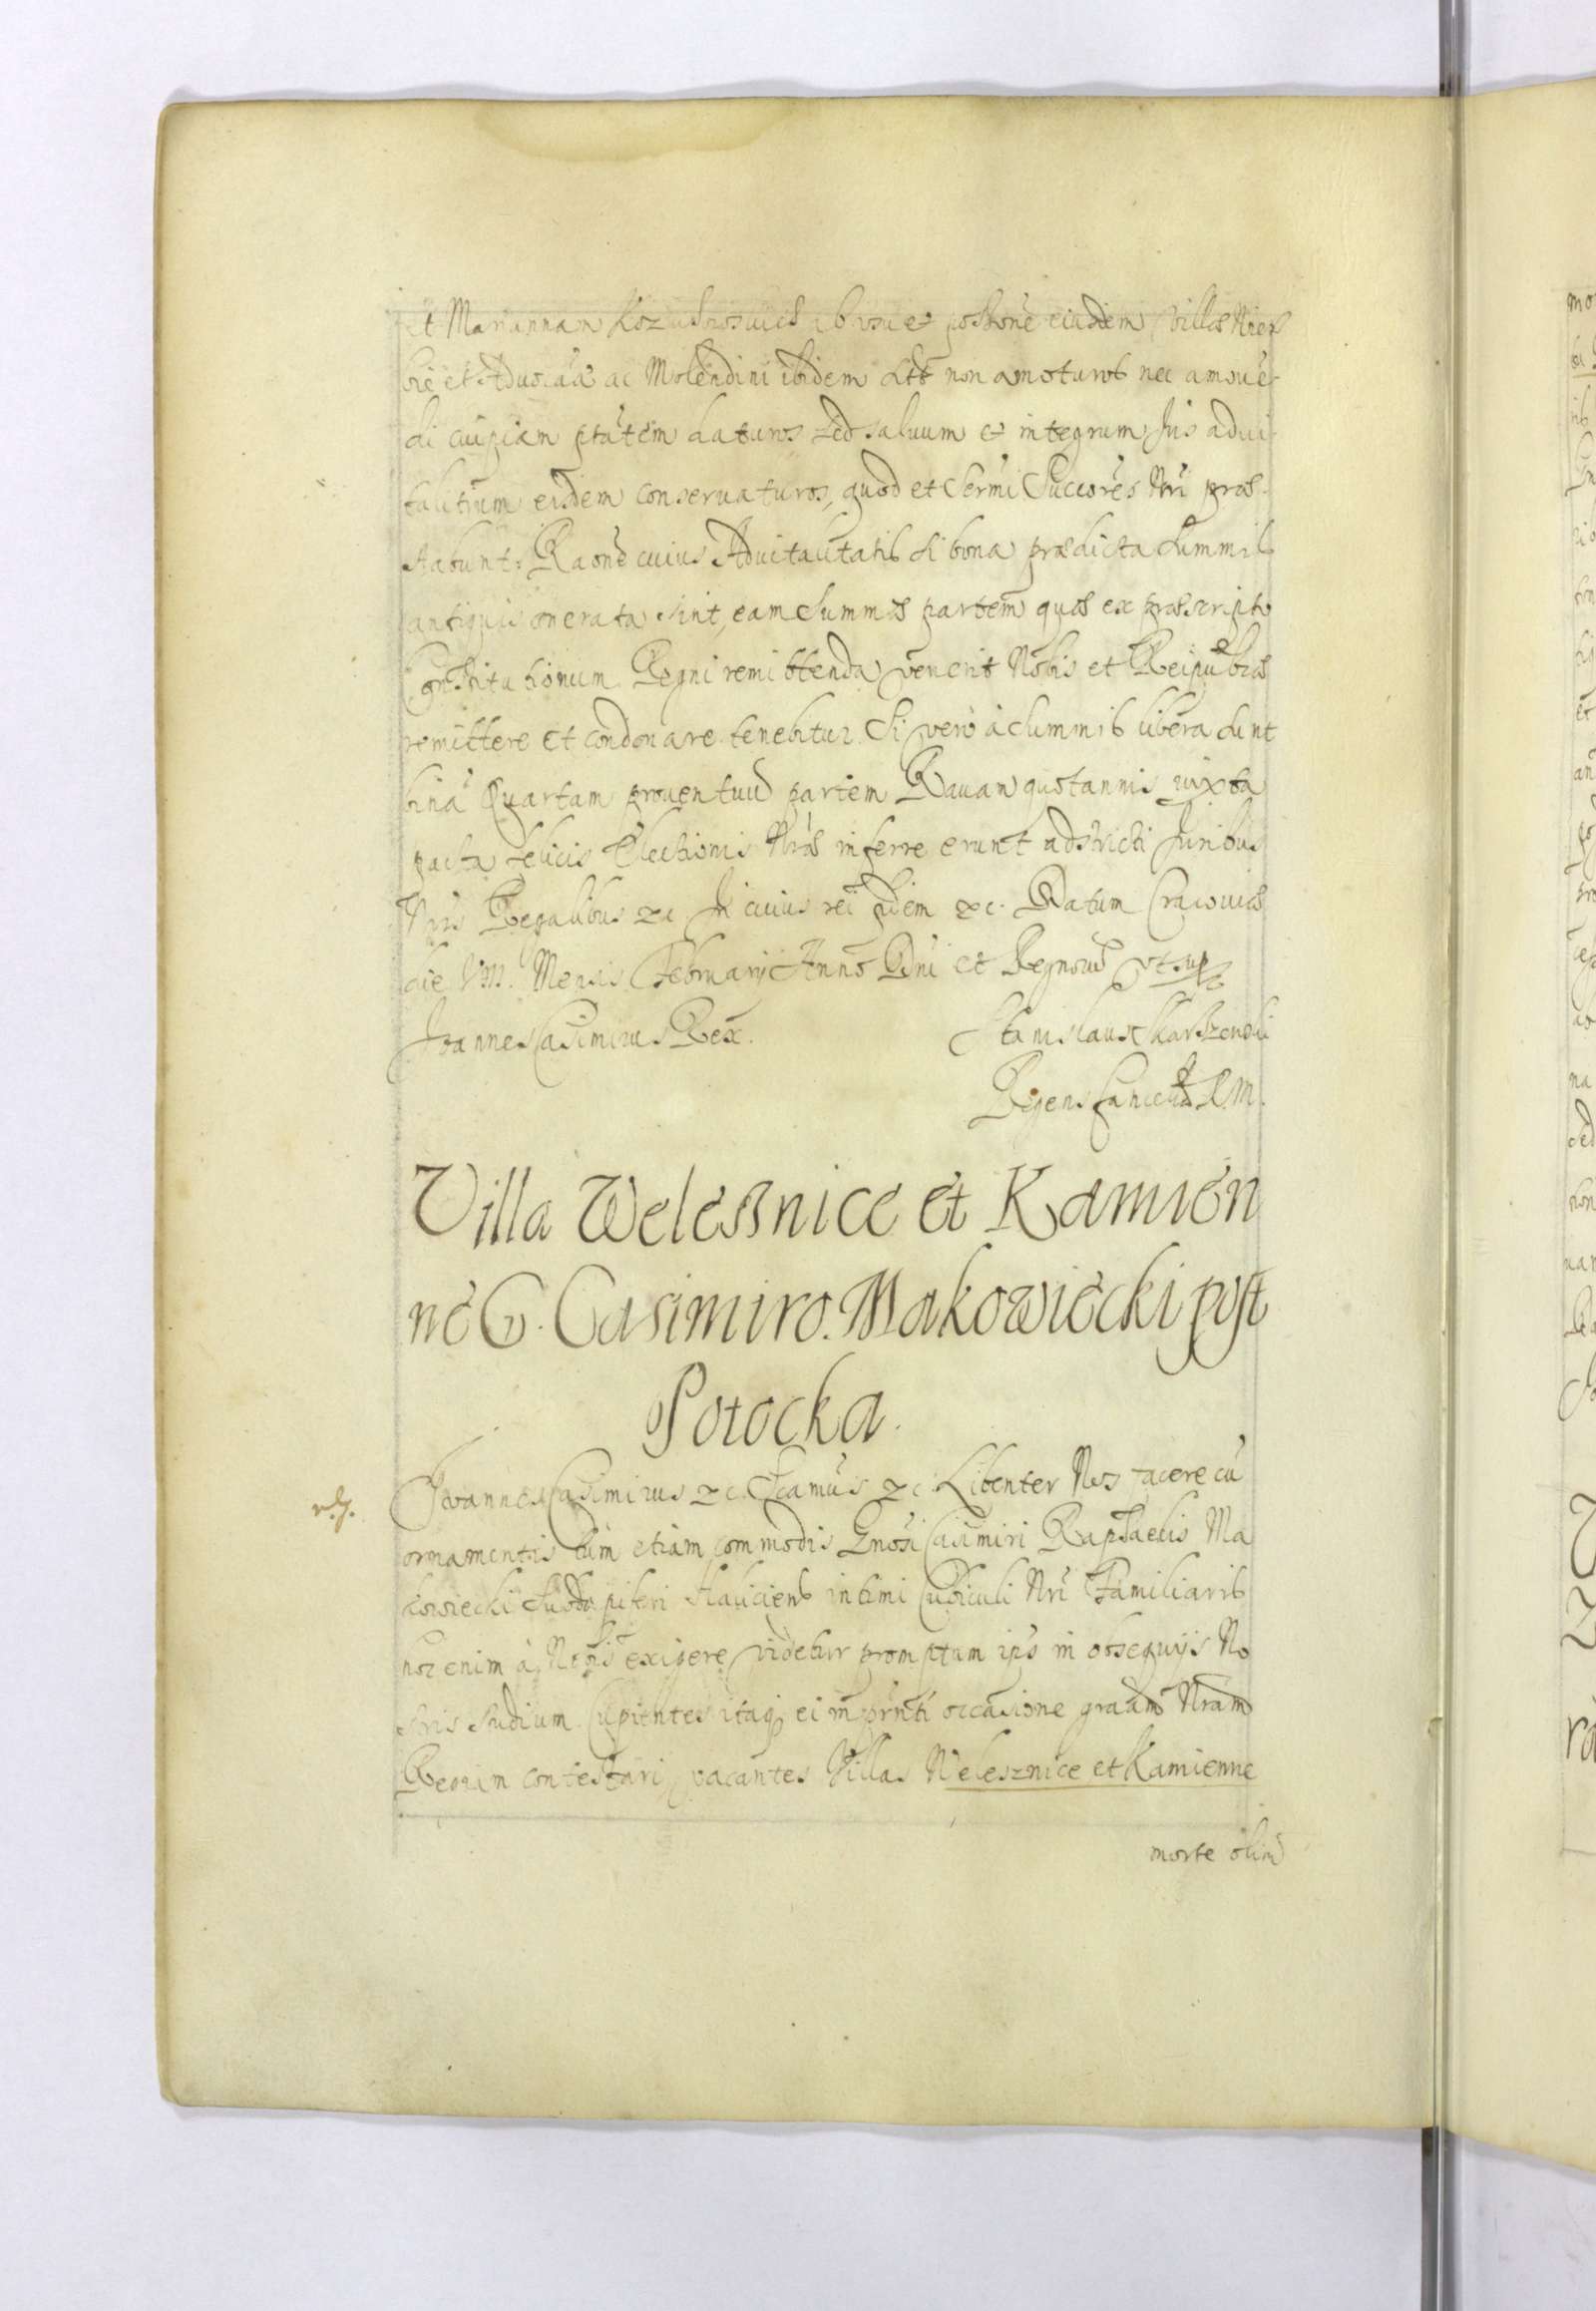 et Mariannam ab usu et possione eiusdem Villæ
et Aduocatiæ ac Molendini ibidem non amoturos nec amouen
di cuipiam ptatem daturos sed saluum et integrum Jus adui
talitium eisdem conseruaturos, quod et Sermi Succores Nri præ
stabunt. Raone cuius Aduitalitatis si bona prædicta summis
antiquis onerata sint, eam summæ partem quæ ex præscripto
Constitutionum Regni remittenda venerit Nobis et Reipublcæ
remittere et condonare tenebitur. Si vero à summis libera sunt
bina Quartam prouentuum partem Rauam quotannis iuxta
pacta felicis Electionis Nræ inferre erunt adstricti Juribus
Nris Regalibus &c. In cuius rei fidem &c. Datum Cracouiæ
die VIII. Mensis Februarij Anno Dni et Regnorum vt sup
Joannes Casimirus Rex. Stanislaus Skarszewski
Regens Cancellæ R. M.
Villa Weleßnice et Kamien
ne G. Casimiro Makowiecki post
Potocka.
Joannes Casimirus &c. Scamus &c. Libenter Nos facere cu
ornamentis tum etiam commodis Gnosi Casimiri Raphaelis Ma
kowiecki Subdapiferi Haliciens intimi Cubiculi Nri Familiaris
hoc enim à Nobis exigere videtur promptum ips in obsequijs No
stris studium. Cupientes itaq ei in prnti occasione graam Nram
Regiam contestari, vacantes Villas Welesznice et Kamienne
morte olim